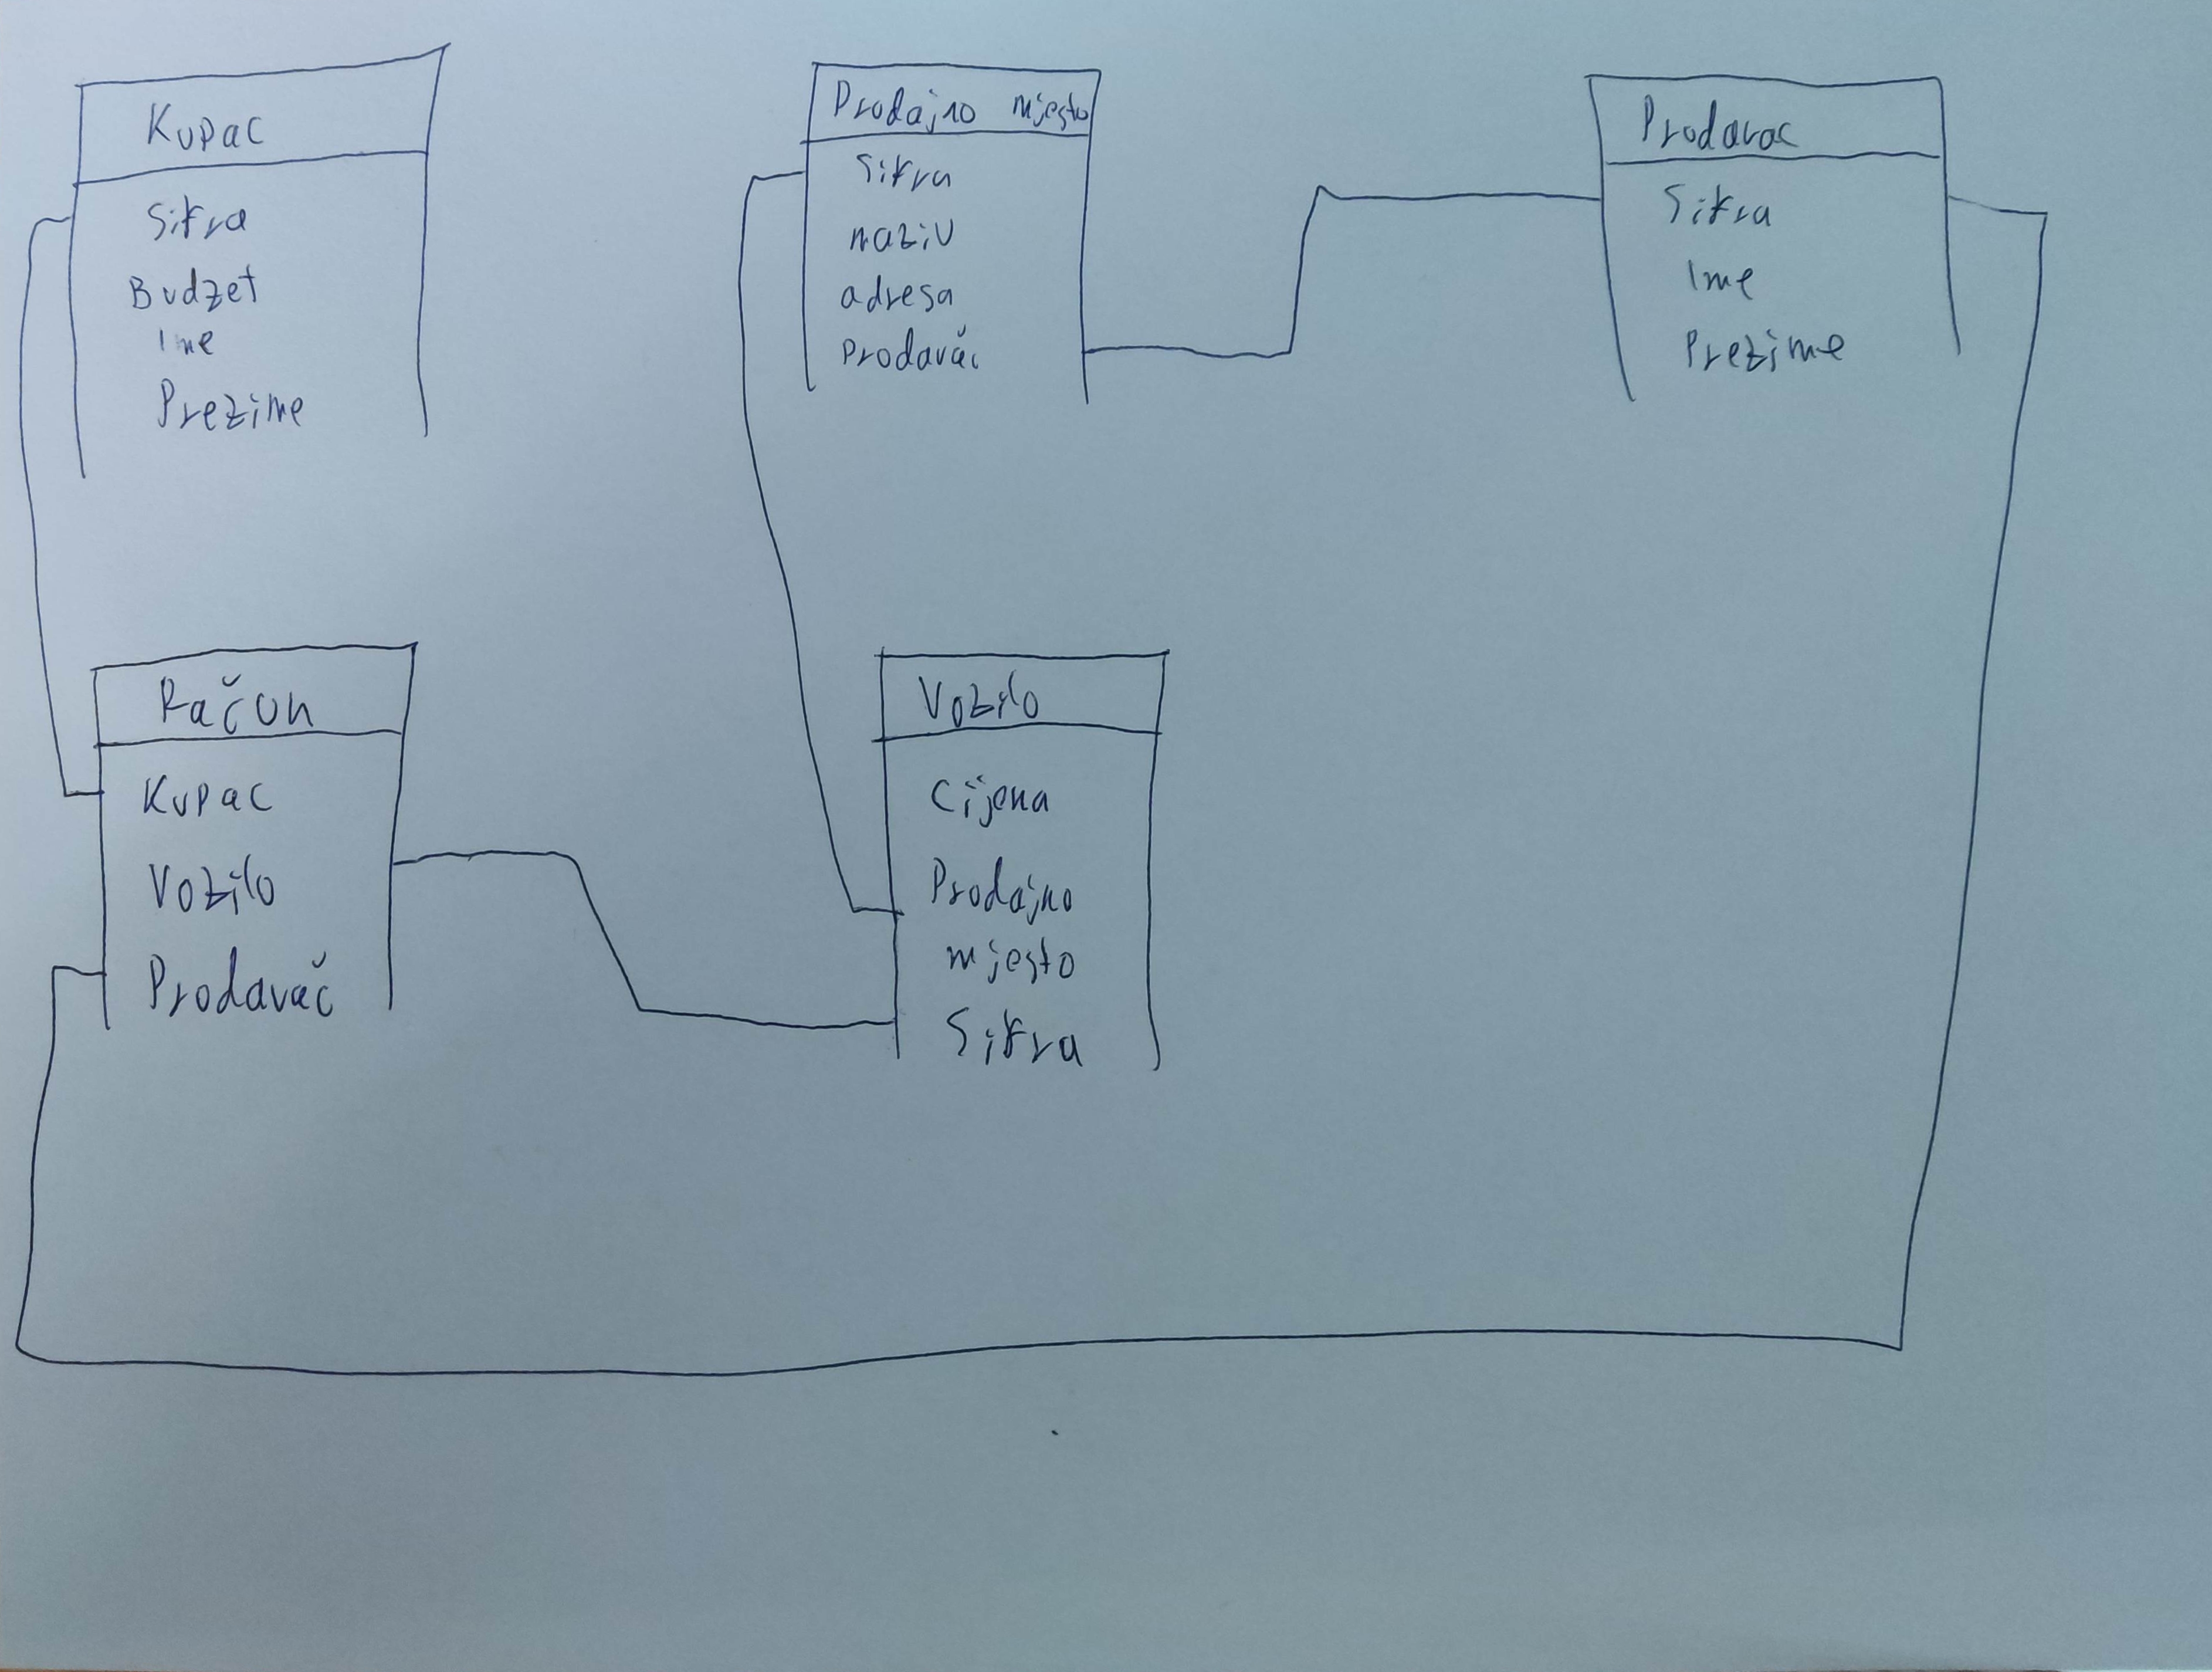 Kupac
Sifra
Budzet
Ime
Prezime
Prodajno mjesto
Sifra
naziv
adresa
Prodavač
Prodavac
Sifra
Ime
Prezime
Račun
Kupac
Vozilo
Prodavač
Vozilo
Cijena
Prodajno
mjesto
Sifra